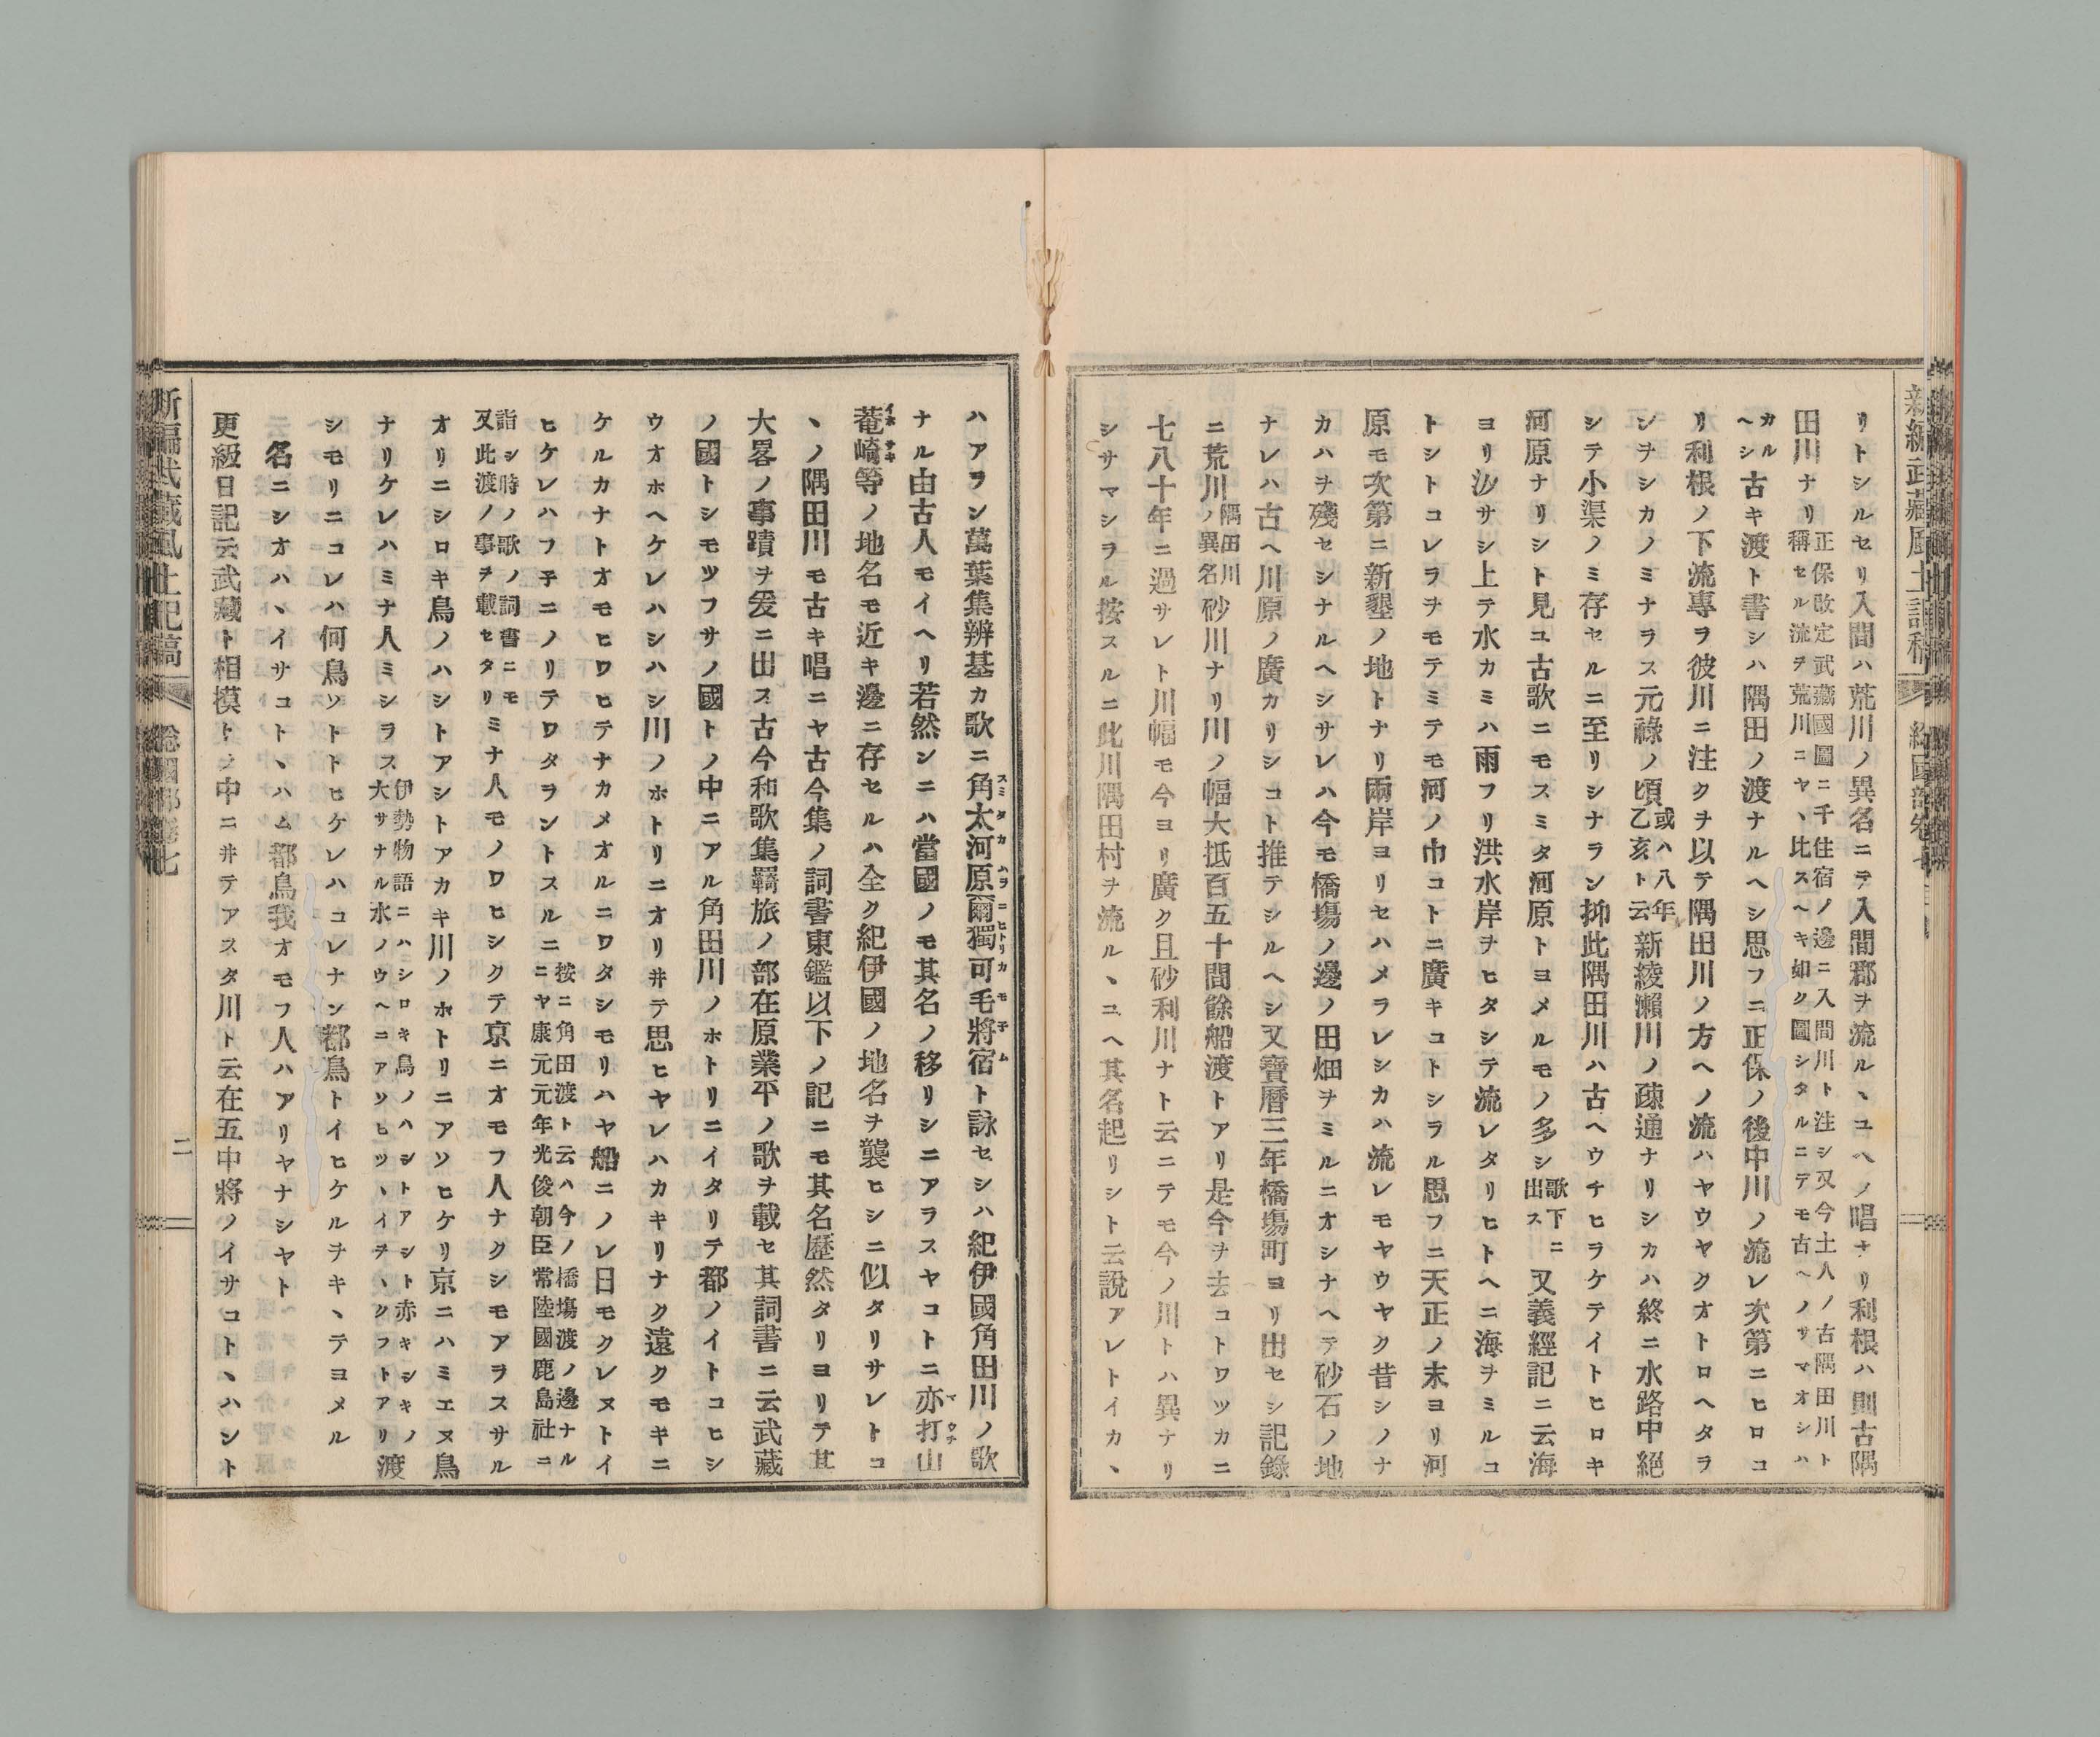 新編武藏風土記稿 總國部卷七
リトシルセリ入間ハ荒川ノ異名ニテ入間郡ヲ流ルヽユヘノ唱ナリ利根ハ則古隅
田川ナリ正保改定武藏國圖ニ千住宿ノ邊ニ入間川ト注シ又今土人ノ古隅田川ト稱セル流ヲ荒川ニヤヽ比スヘキ如ク圖シタルニテモ古ヘノサマオシハ
カルヘシ古キ渡ト書シハ隅田ノ渡ナルヘシ思フニ正保ノ後中川ノ流レ次第ニヒロコ
リ利根ノ下流專ヲ彼川ニ注クヲ以テ隅田川ノ方ヘノ流ハヤウヤクオトロヘタラ
ンヲシカノミナラス元祿ノ頃或ハ八年乙亥ト云新綾瀨川ノ疎通ナリシカハ終ニ水路中絕
シテ小渠ノミ存セルニ至リシナラン抑此隅田川ハ古ヘウチヒラケテイトヒロキ
河原ナリシト見ユ古歌ニモスミタ河原トヨメルモノ多シ歌下ニ出ス又義經記ニ云海
ヨリ汐サシ上テ水カミハ雨フリ洪水岸ヲヒタシテ流レタリヒトヘニ海ヲミルコ
トシトコレラヲモテミテモ河ノ巾コトニ廣キコトシラル思フニ天正ノ末ヨリ河
原モ次第ニ新墾ノ地トナリ兩岸ヨリセハメラレシカハ流レモヤウヤク昔シノナ
カハヲ殘セシナルヘシサレハ今モ橋塲ノ邊ノ田畑ヲミルニオシナヘテ砂石ノ地
ナレハ古ヘ川原ノ廣カリシコト推テシルヘシ又寶曆三年橋塲町ヨリ出セシ記錄
ニ荒川ノ隅田川異名砂川ナリ川ノ幅大抵百五十間餘船渡トアリ是今ヲ去コトワツカニ
七八十年ニ過サレト川幅モ今ヨリ廣ク且砂利川ナト云ニテモ今ノ川トハ異ナリ
シサマシラル按スルニ此川隅田村ヲ流ルヽユヘ其名起リシト云說アレトイカヽ
ハアラン萬葉集辨基カ歌ニ角太河原爾獨可毛將宿ト詠セシハ紀伊國角田川ノ歌
ナル由古人モイヘリ若然ンニハ當國ノモ其名ノ移リシニアラスヤコトニ亦打山
菴崎等ノ地名モ近キ邊ニ存セルハ全ク紀伊國ノ地名ヲ襲ヒシニ似タリサレトコ
ヽノ隅田川モ古キ唱ニヤ古今集ノ詞書東鑑以下ノ記ニモ其名歷然タリヨリテ其
大畧ノ事蹟ヲ爰ニ出ス古今和歌集羇旅ノ部在原業平ノ歌ヲ載セ其詞書ニ云武藏
ノ國トシモツフサノ國トノ中ニアル角田川ノホトリニイタリテ都ノイトコヒシ
ウオホヘケレハシハシ川ノホトリニオリ井テ思ヒヤレハカキリナク遠クモキニ
ケルカナトオモヒワヒテナカメオルニワタシモリハヤ船ニノレ日モクレヌトイ
ヒケレハフ子ニノリテワタラントスルニ按ニ角田渡ト云ハ今ノ橋塲渡ノ邊ナルニヤ康元元年光俊朝臣常陸國鹿島社ニ
詣シ時ノ歌ノ詞書ニモ又此渡ノ事ヲ載セタリミナ人モノワヒシクテ京ニオモフ人ナクシモアラスサル
オリニシロキ鳥ノハシトアシトアカキ川ノホトリニアソヒケリ京ニハミエヌ鳥
ナリケレハミナ人ミシラス伊勢物語ニハシロキ鳥ノハシトアシト赤キシキノ大サナル水ノウヘニアソヒツヽイヲヽクフトアリ渡
シモリニコレハ何鳥ソトトヒケレハコレナン都鳥トイヒケルヲキヽテヨメル
名ニシオハヽイサコトヽハム都鳥我オモフ人ハアリヤナシヤト
更級日記云武藏ト相摸トノ中ニ井テアスタ川ト云在五中將ノイサコトヽハント
新編武藏風土記稿 總國部卷七 二